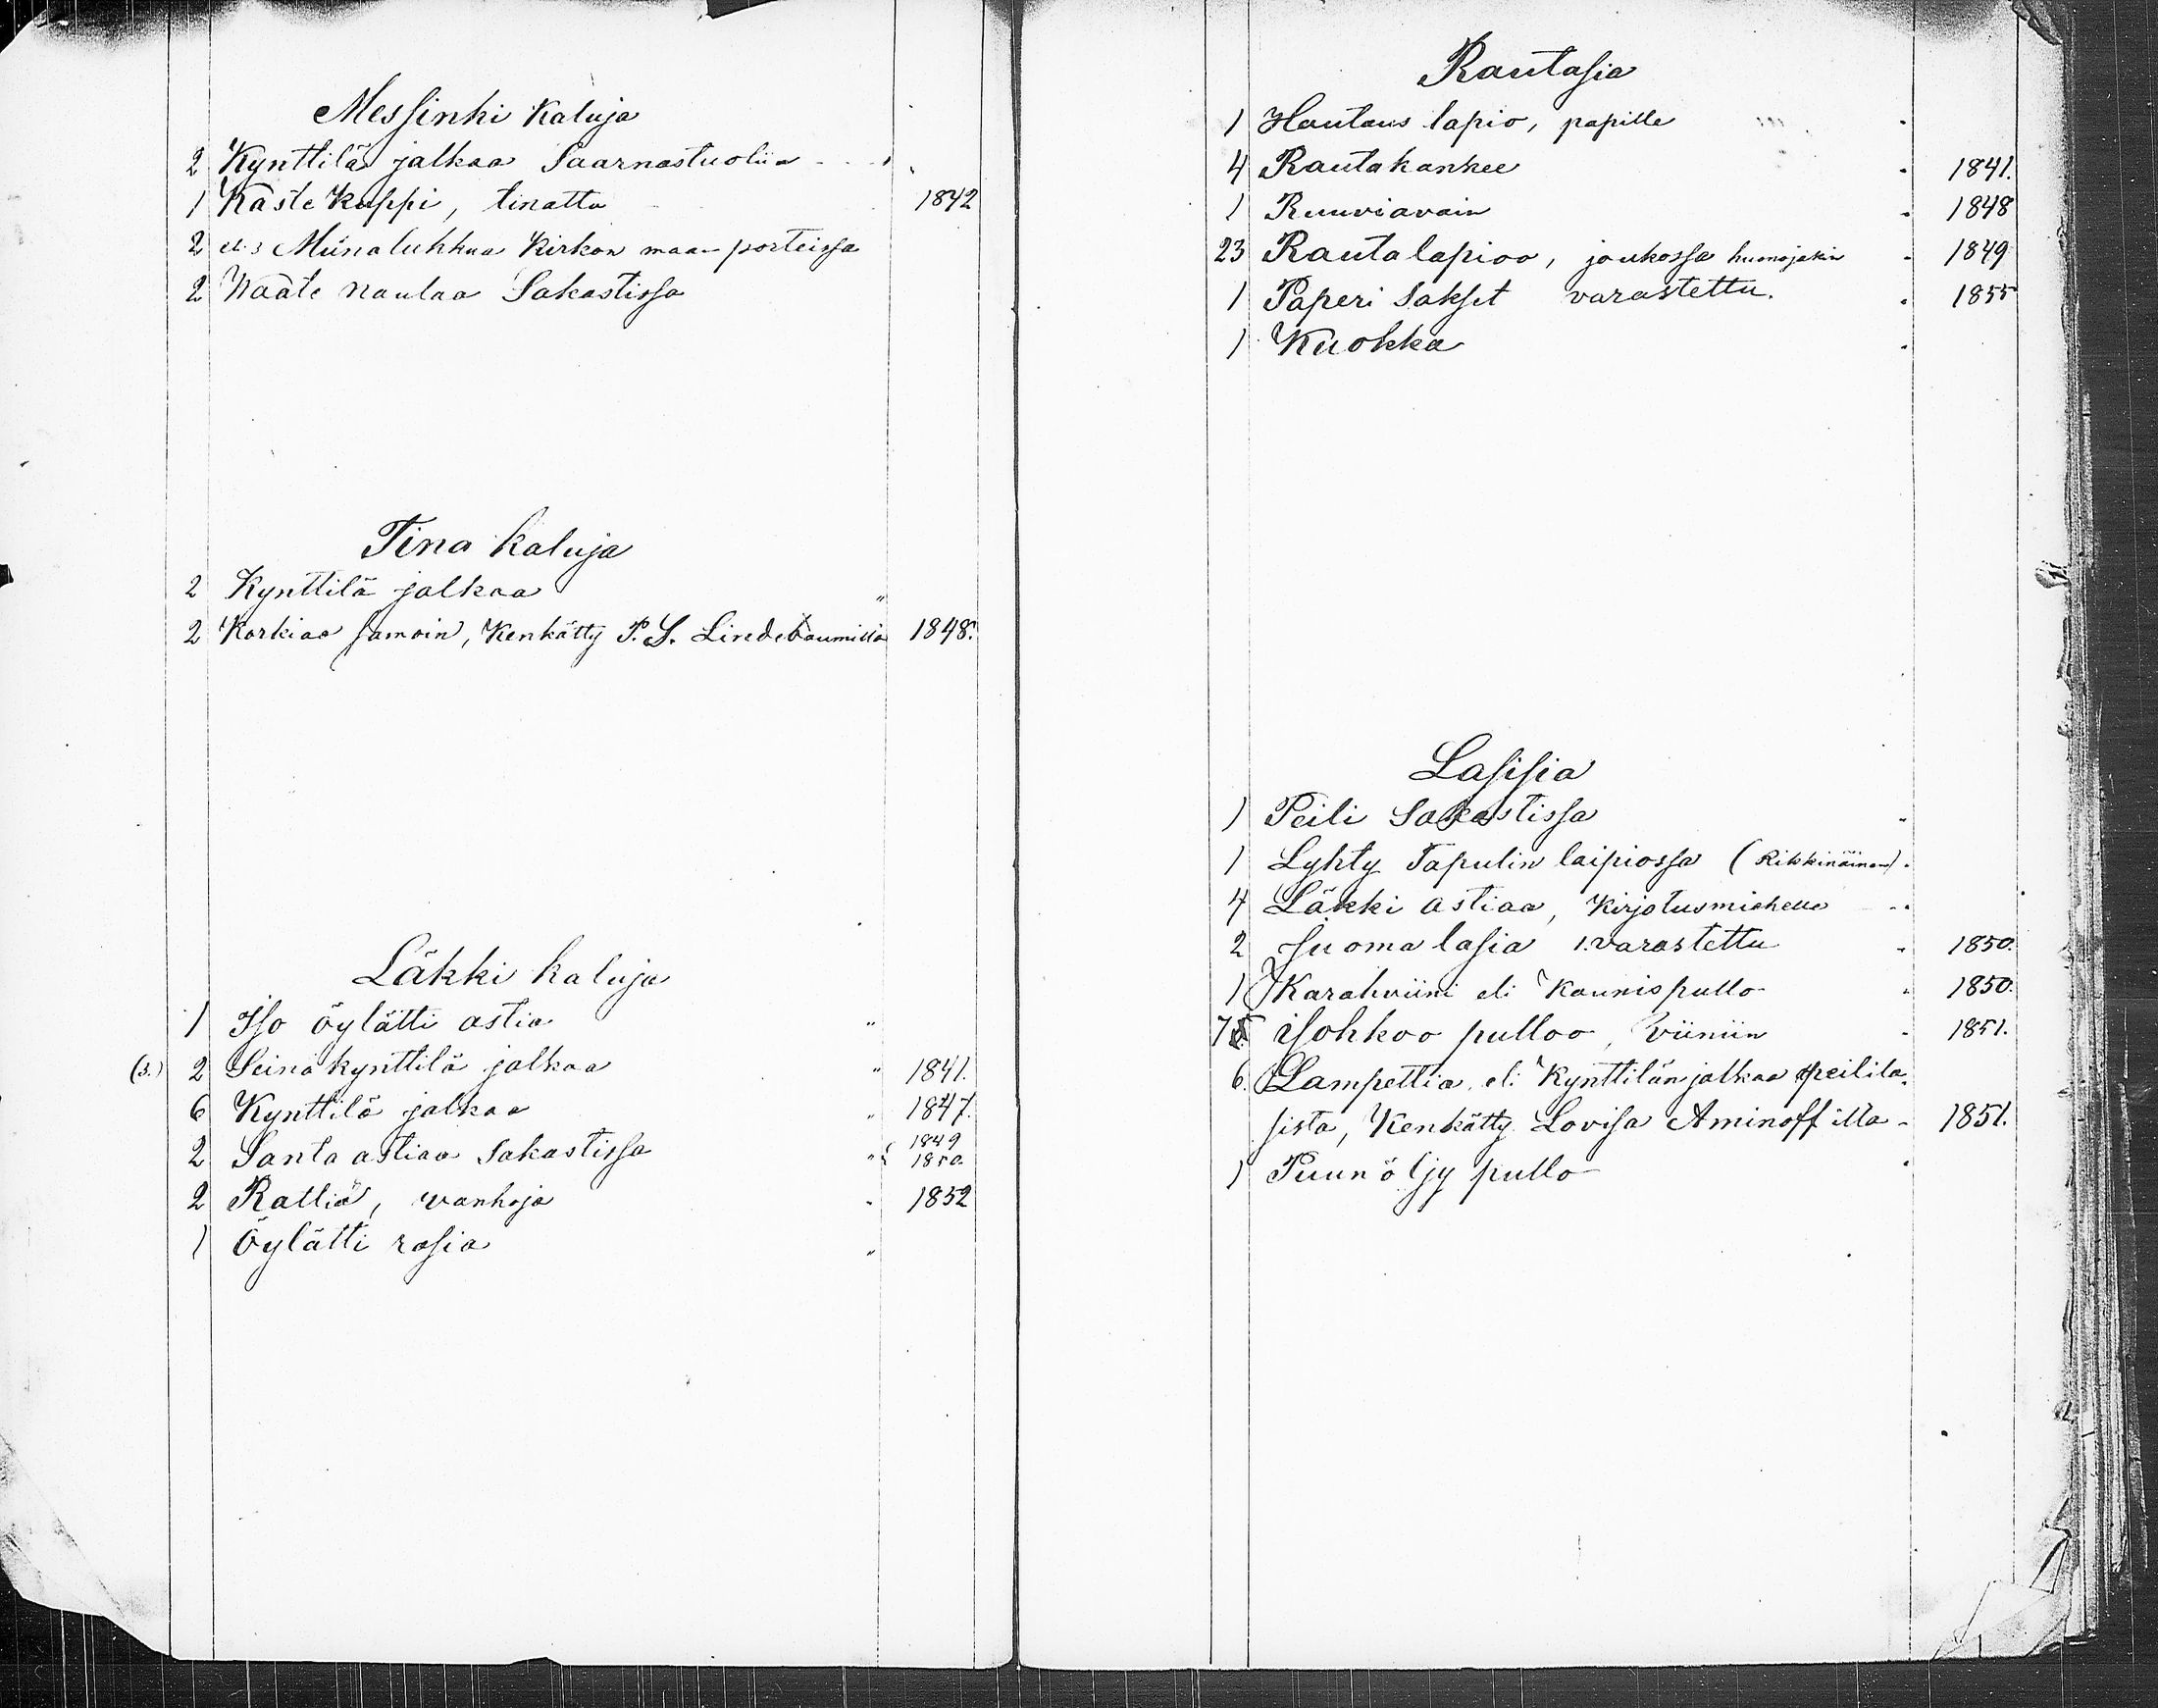 Messinki Kaluja
2 Kynttilä jalkaa Saarnastuoliia
1 Kaste Kuppi, tinattu 1842
2 Muna lukkua Kirkon maan porteissa
2 Waate naulaa Sakastissa
Tina kaluja
2 Kynttilä jalkaa "
2 Korkiaa samoin, Kenkätty P. S. Lindebaumilla 1848.
Läkki kaluja
1 Iso öylätti astia "
(3.) 2 Seinäkynttilä jalkaa " 1841.
6 Kynttilä jalkaa " 1847.
2 Santa astiaa Sakastissa " 1849 1850.
2 Rattia, wanhoja " 1852
1 Öylätti rasia "
Rautasia
1 Hautaus lapio, papille
4 Rautakankee 1841.
1 Ruuviavain 1848
23 Rautalapioo, joukossa huonojakin 1849
1 Paperi Sakset varastettu. 1855
1 Kuokka
Lasisia
1 Peili Sakastissa
1 Lyhty Tapulin laipiossa (Rikkinäinen).
4 Läkki astiaa, Kirjotusmiehelle
2 Juoma lasia 1. varastettu 1850.
1 Karahviini eli Kaunispullo 1850.
7 isohkoo pulloo, viiniin 1851.
6. Lampettia eli Kynttilänjalkaa peilila-
sista, Kenkätty Lovisa Aminoffilla 1851.
1 Puunöljy pullo